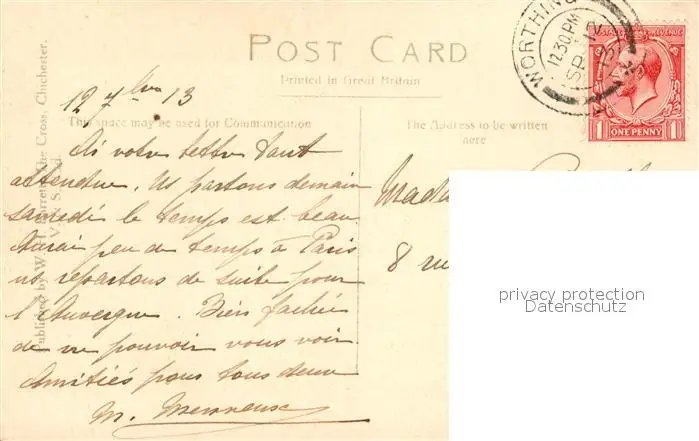 POST CARD
Printed in Great Britain
WORTHING
12.30 PM
SP 12
13
POSTAGE REVENUE
1 ONE PENNY 1
12 7bre 13
This space may be used for Communication
The Address to be written
here
Ai votre lettre tant
attendue. Ns partons demain
samedi le temps est beau
Aurai peu de temps à Paris
ns repartons de suite pour
l'Auvergne. Bien fâchée
de ne pouvoir vous voir
Amitiés pour tous deux
M.
Mada
8 rue
Published by W. H. Barrett, The Cross, Chichester.
privacy protection
Datenschutz